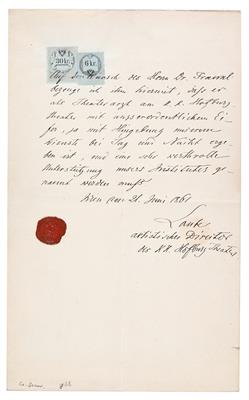 30 kr.
6 kr.
Auf den Wunsch des Herrn Dr.
bezeuge ich ihm hiermit, daß er
als Theaterarzt am k. k. Hofburg
theater mit außerordentlichem Ei-
fer, ja mit Hingebung unserem
Dienste bei Tag und Nacht erge-
ben ist, und eine sehr werthvolle
Unterstützung unsers Institutes ge-
nannt werden muß
Wien den 21. Juni 1861
Laube
artistischer Director
des k.k. Hofburgtheaters